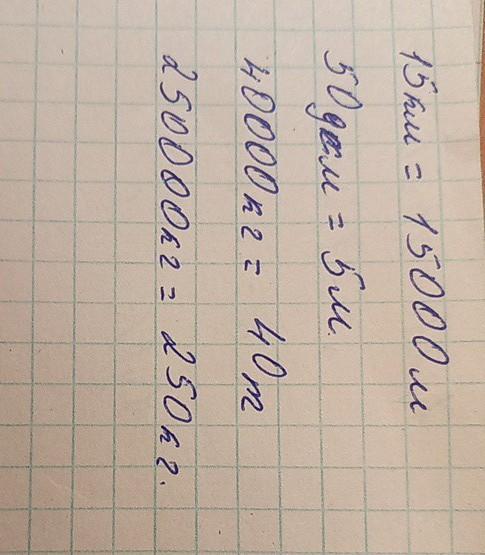 15км = 15000м
50дм = 5м.
40000кг = 40т
250000кг = 250кг.